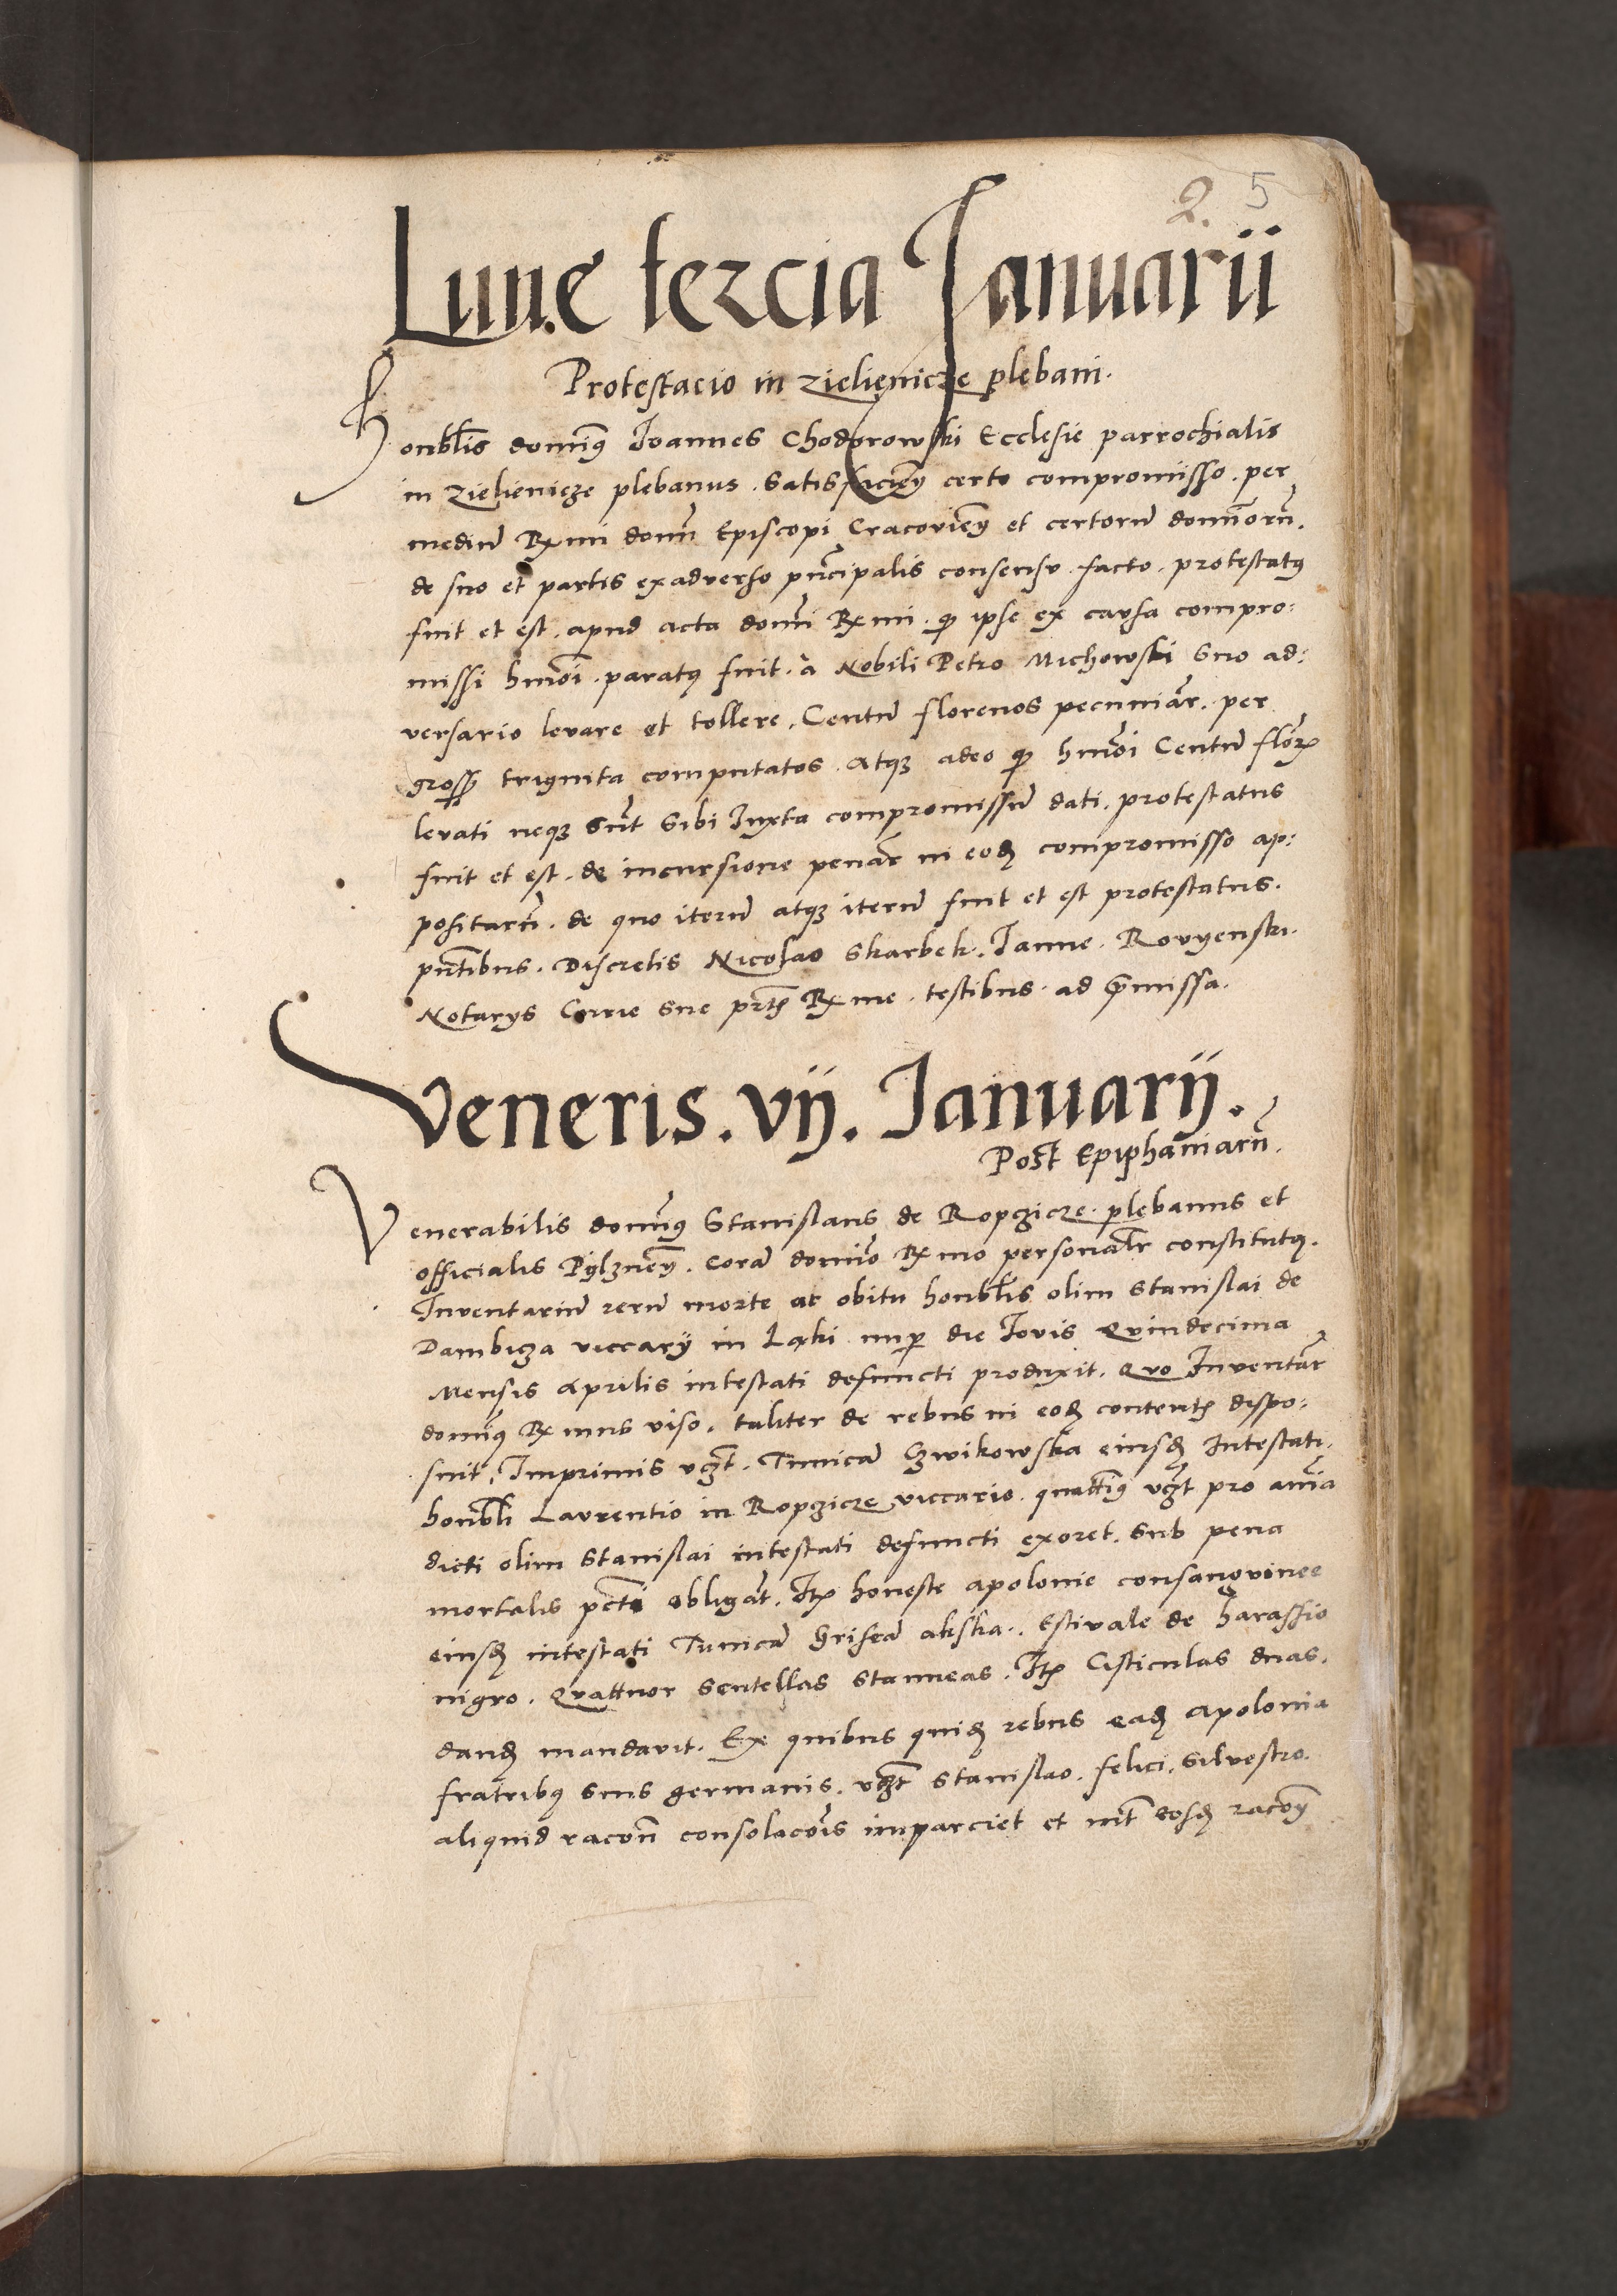 2. 5
Lune tercia Januarii
Protestacio in Zielienicze plebani.
Honblis dominꝰ Joannes Chodorowski Ecclesie parrochialis
in Zielienicze plebanus. Satisfacieñ certo compromisso. per
mediū Rx̄mi domī Episcopi Cracovień et certorū dominorū.
de suo et partis exadverso prīcipalis consensu facto. protestatꝰ
fuit et est. apud acta domī Rx̄mi. qꝫ ipse ex causa compro:
missi hm̄oi. paratꝰ fuit. a Nobili Petro Michowski suo ad:
versario levare et tollere. Centū florenos pecuniar̄. per
gross̄ triginta computatos. Atqꝫ adeo qꝫ hm̄oi Centū floreñ
levati neqꝫ sūt sibi Juxta compromissū dati. protestatus
fuit et est. de incursione penar̄ in eodē compromisso ap:
positarū. de quo iterū atqꝫ iterū fuit et est protestatus.
pn̄tibus. Discretis Nicolao Skarbek. Janne. Rovyenski.
Notarys Curie sue prt̄is Rx̄me. testibus. ad p̄missa.
Veneris. vij. Januarij.
Post Epiphaniarū.
Venerabilis dominꝰ Stanislaus de Ropczicze. plebanus et
officialis Pylzneñ. Corā domino Rx̄mo personalr̄ constitutꝰ.
Inventariū rerū morte ac obitu honblis olim Stanislai de
Dambicza viccarij in Laki nup̱ die Jovis Quindecima
Mensis Aprilis intestati defuncti produxit. Quo Inventar̄
dominꝰ Rx̄mus viso. taliter de rebus in eodē contentis dispo:
suit. Imprimis vcꝫt. Tunicā Czwikowska eiusdē Intestati.
honbli Laurentio in Ropczicze viccario. quatinꝰ vcꝫt pro aīa
dicti olim Stanislai intestati defuncti exoret. sub pena
mortalis pcti obligāt. Itꝫ honeste Apolonie consangvinee
eiusdē intestati Tunicā Griseā akska. Estivale de harassio
nigro. Quattuor scutellas stanneas. Itꝫ Cisticulas duas.
dandā mandavit. Ex quibus quidē rebus eadē Apolonia
fratribꝰ suis germanis. vcꝫt Stanislao. felici. Silvestro.
aliquid racōn consolacōis imparciet et int̄ eosdē racōn